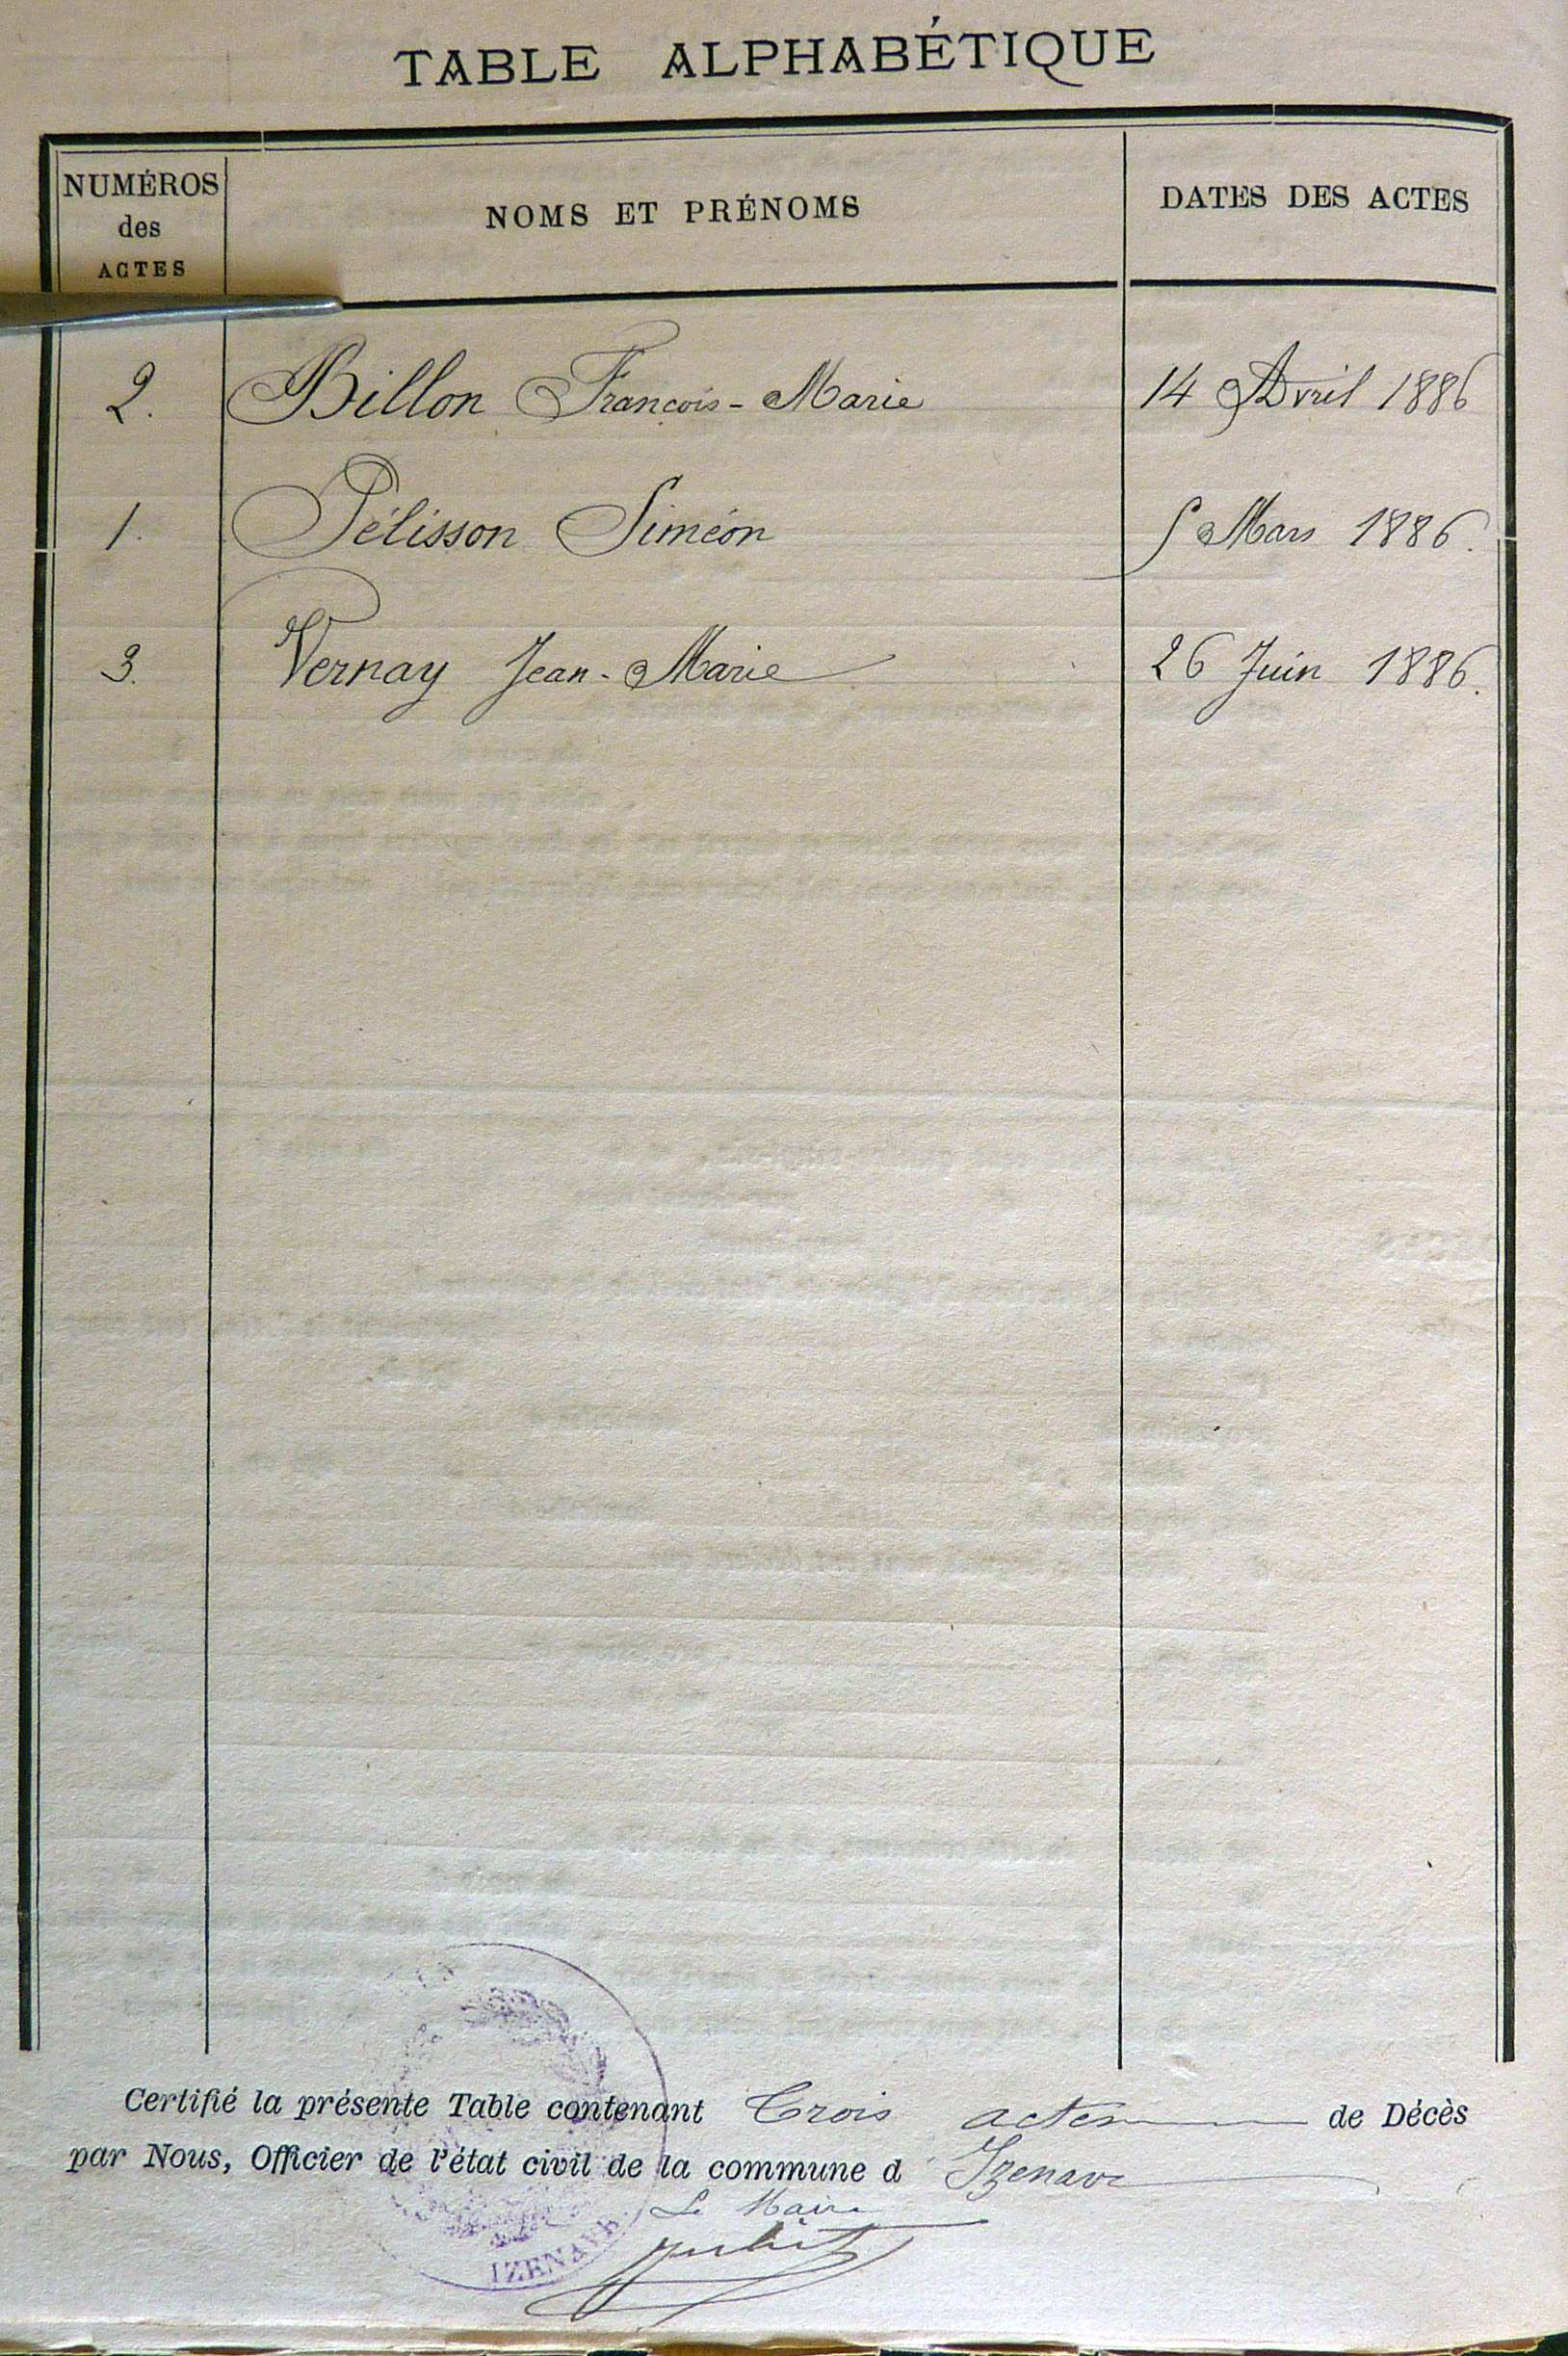 TABLE ALPHABÉTIQUE
NUMÉROS
des
ACTES
NOMS ET PRÉNOMS
DATES DES ACTES
2. Billon François-Marie 14 Avril 1886
1. Pélisson Siméon 5 Mars 1886.
3. Vernay Jean-Marie 26 Juin 1886.
Certifié la présente Table contenant Trois actes de Décès
par Nous, Officier de l'état civil de la commune d'Izenave
Le Maire
IZENAVE